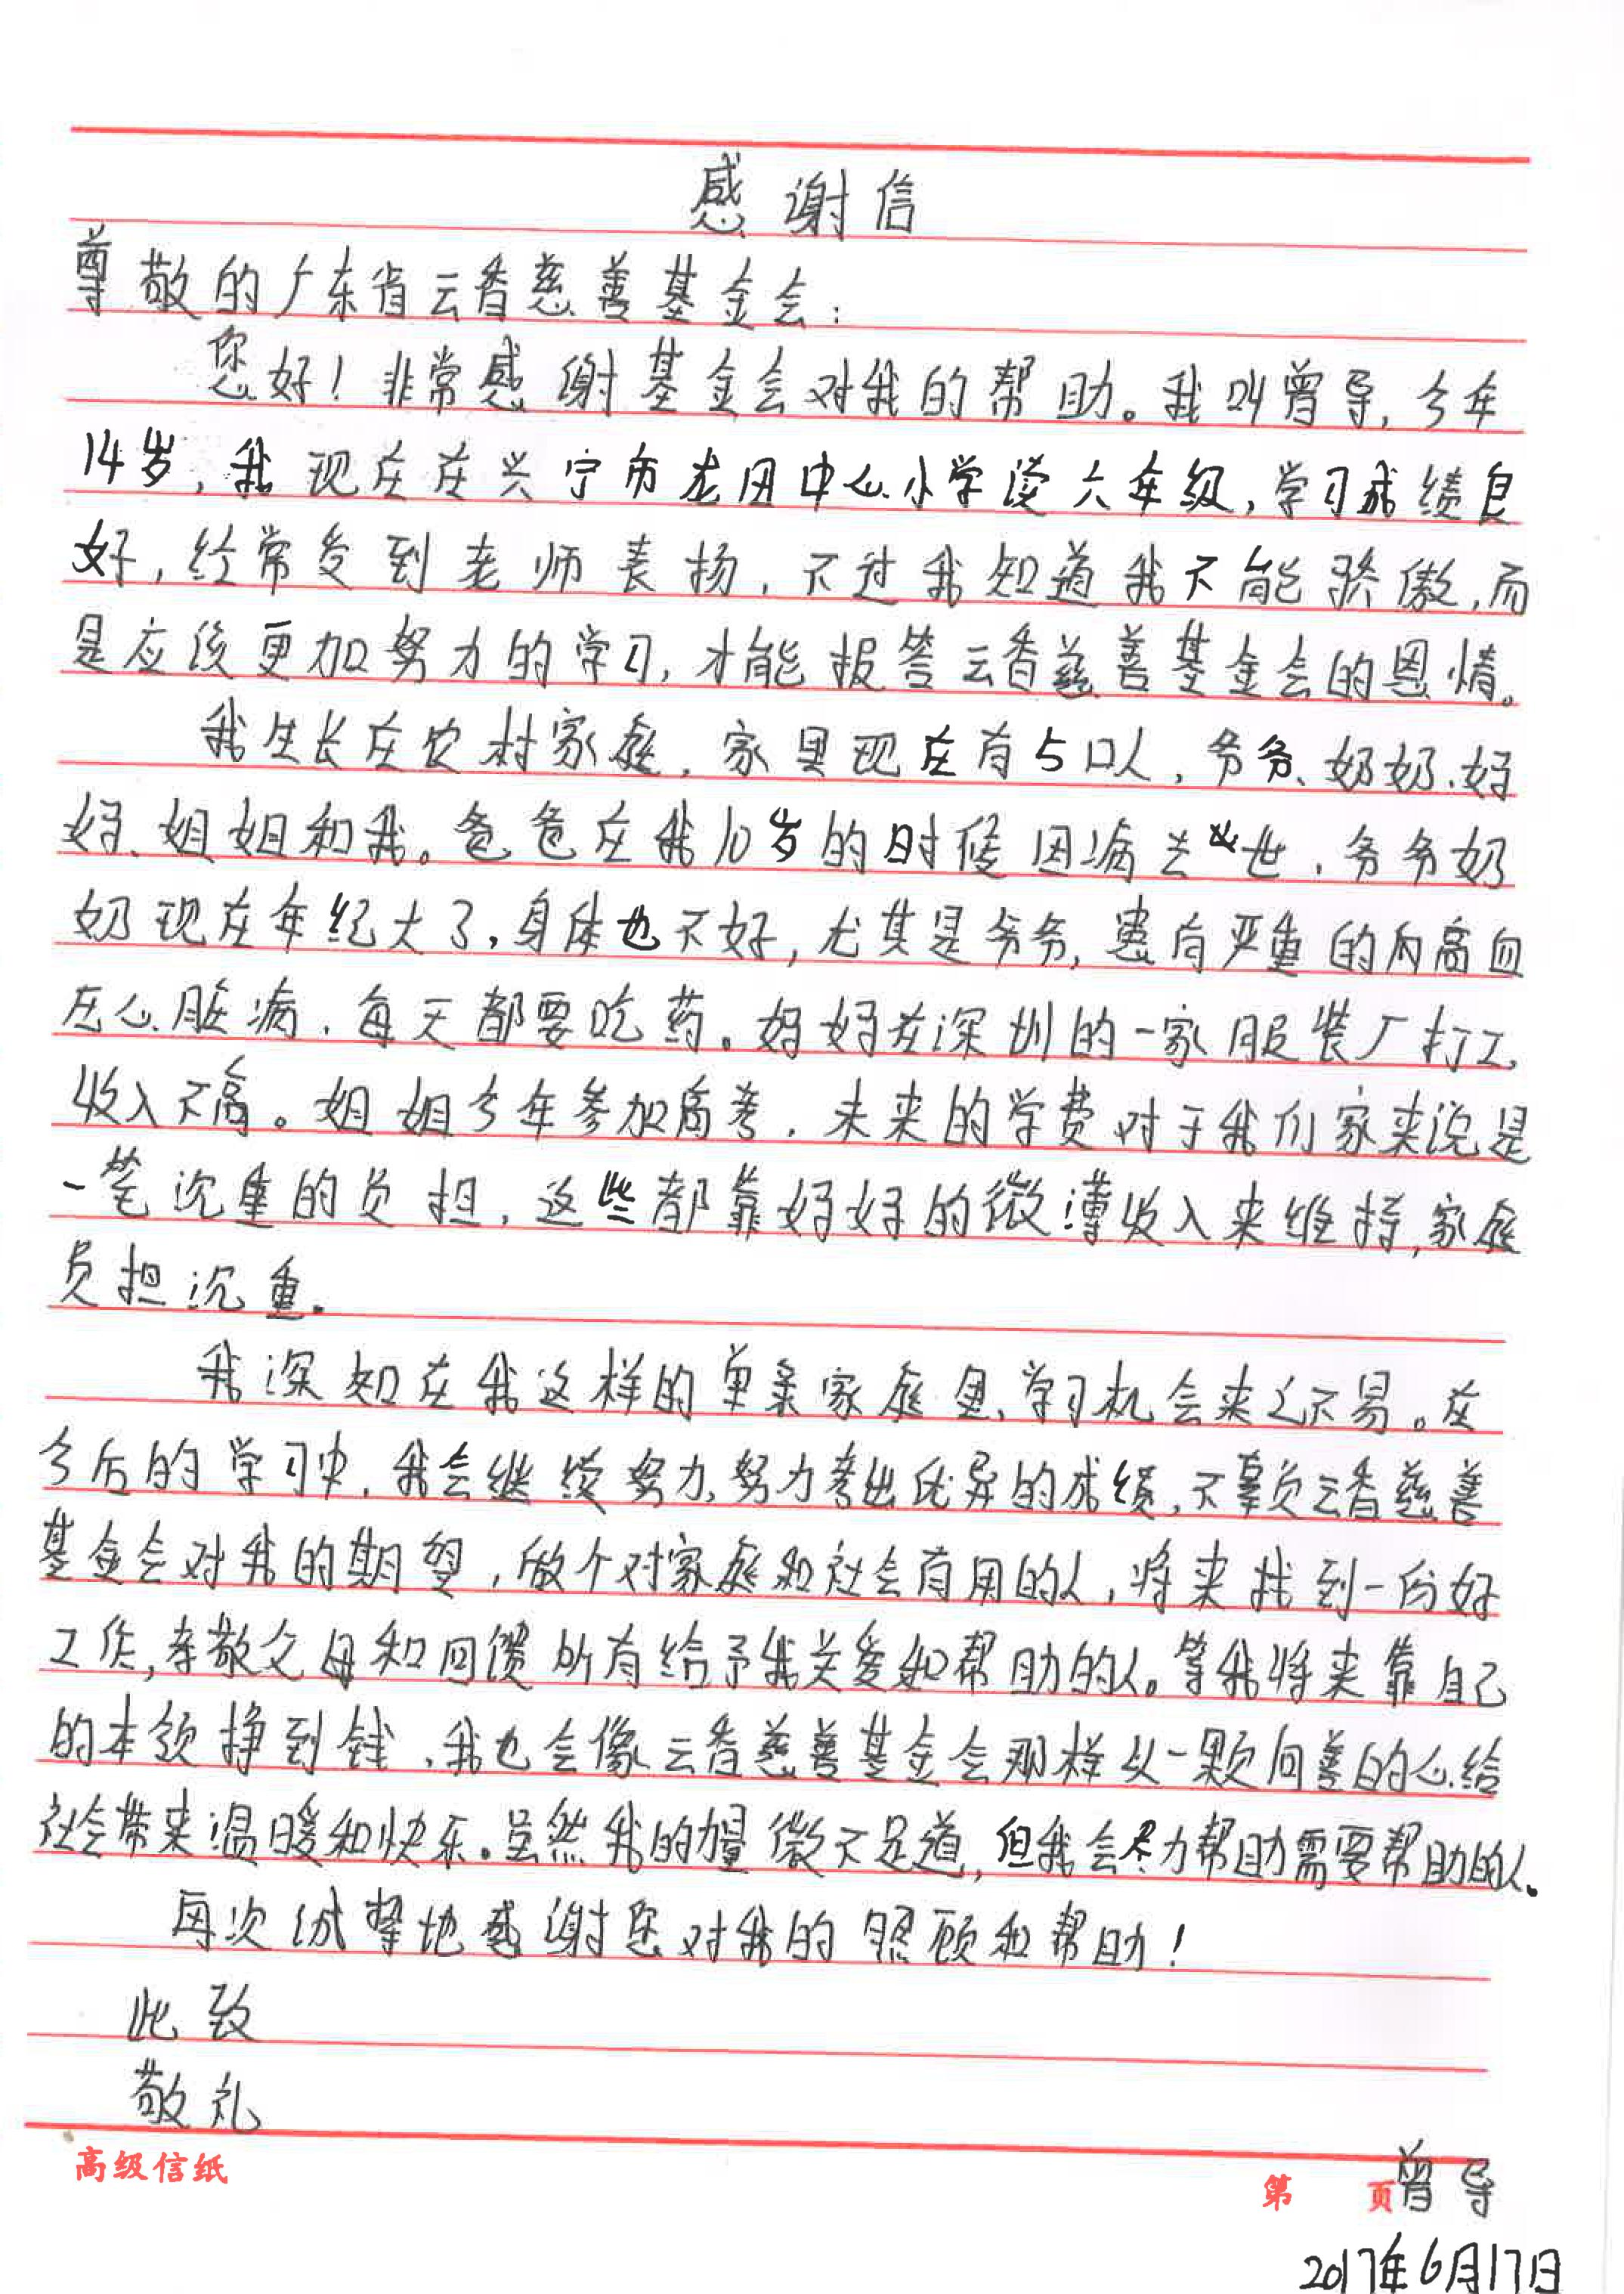 感谢信
尊敬的广东省云香慈善基金会：
您好！非常感谢基金会对我的帮助。我叫曾导，今年
14岁，我现在在兴宁市龙田中心小学读六年级，学习成绩良
好，经常受到老师表扬，不过我知道我不能骄傲，而
是应该更加努力的学习，才能报答云香慈善基金会的恩情。
我生长在农村家庭，家里现在有5口人，爷爷、奶奶、妈
妈、姐姐和我。爸爸在我10岁的时候因病去世，爷爷奶
奶现在年纪大了，身体也不好，尤其是爷爷，患有严重的高血
压心脏病，每天都要吃药。妈妈在深圳的一家服装厂打工，
收入不高。姐姐今年参加高考，未来的学费对于我们家来说是
一笔沉重的负担，这些都靠妈妈的微薄收入来维持，家庭
负担沉重。
我深知在我这样的单亲家庭里，学习机会来之不易。在
今后的学习中，我会继续努力，努力考出优异的成绩，不辜负云香慈善
基金会对我的期望，做个对家庭和社会有用的人，将来找到一份好
工作，孝敬父母和回馈所有给予我关爱和帮助的人。等我将来靠自己
的本领挣到钱，我也会像云香慈善基金会那样以一颗向善的心给
社会带来温暖和快乐。虽然我的力量微不足道，但我会尽力帮助需要帮助的人。
再次诚挚地感谢您对我的照顾和帮助！
此致
敬礼
高级信纸
第 页
曾导
2017年6月17日